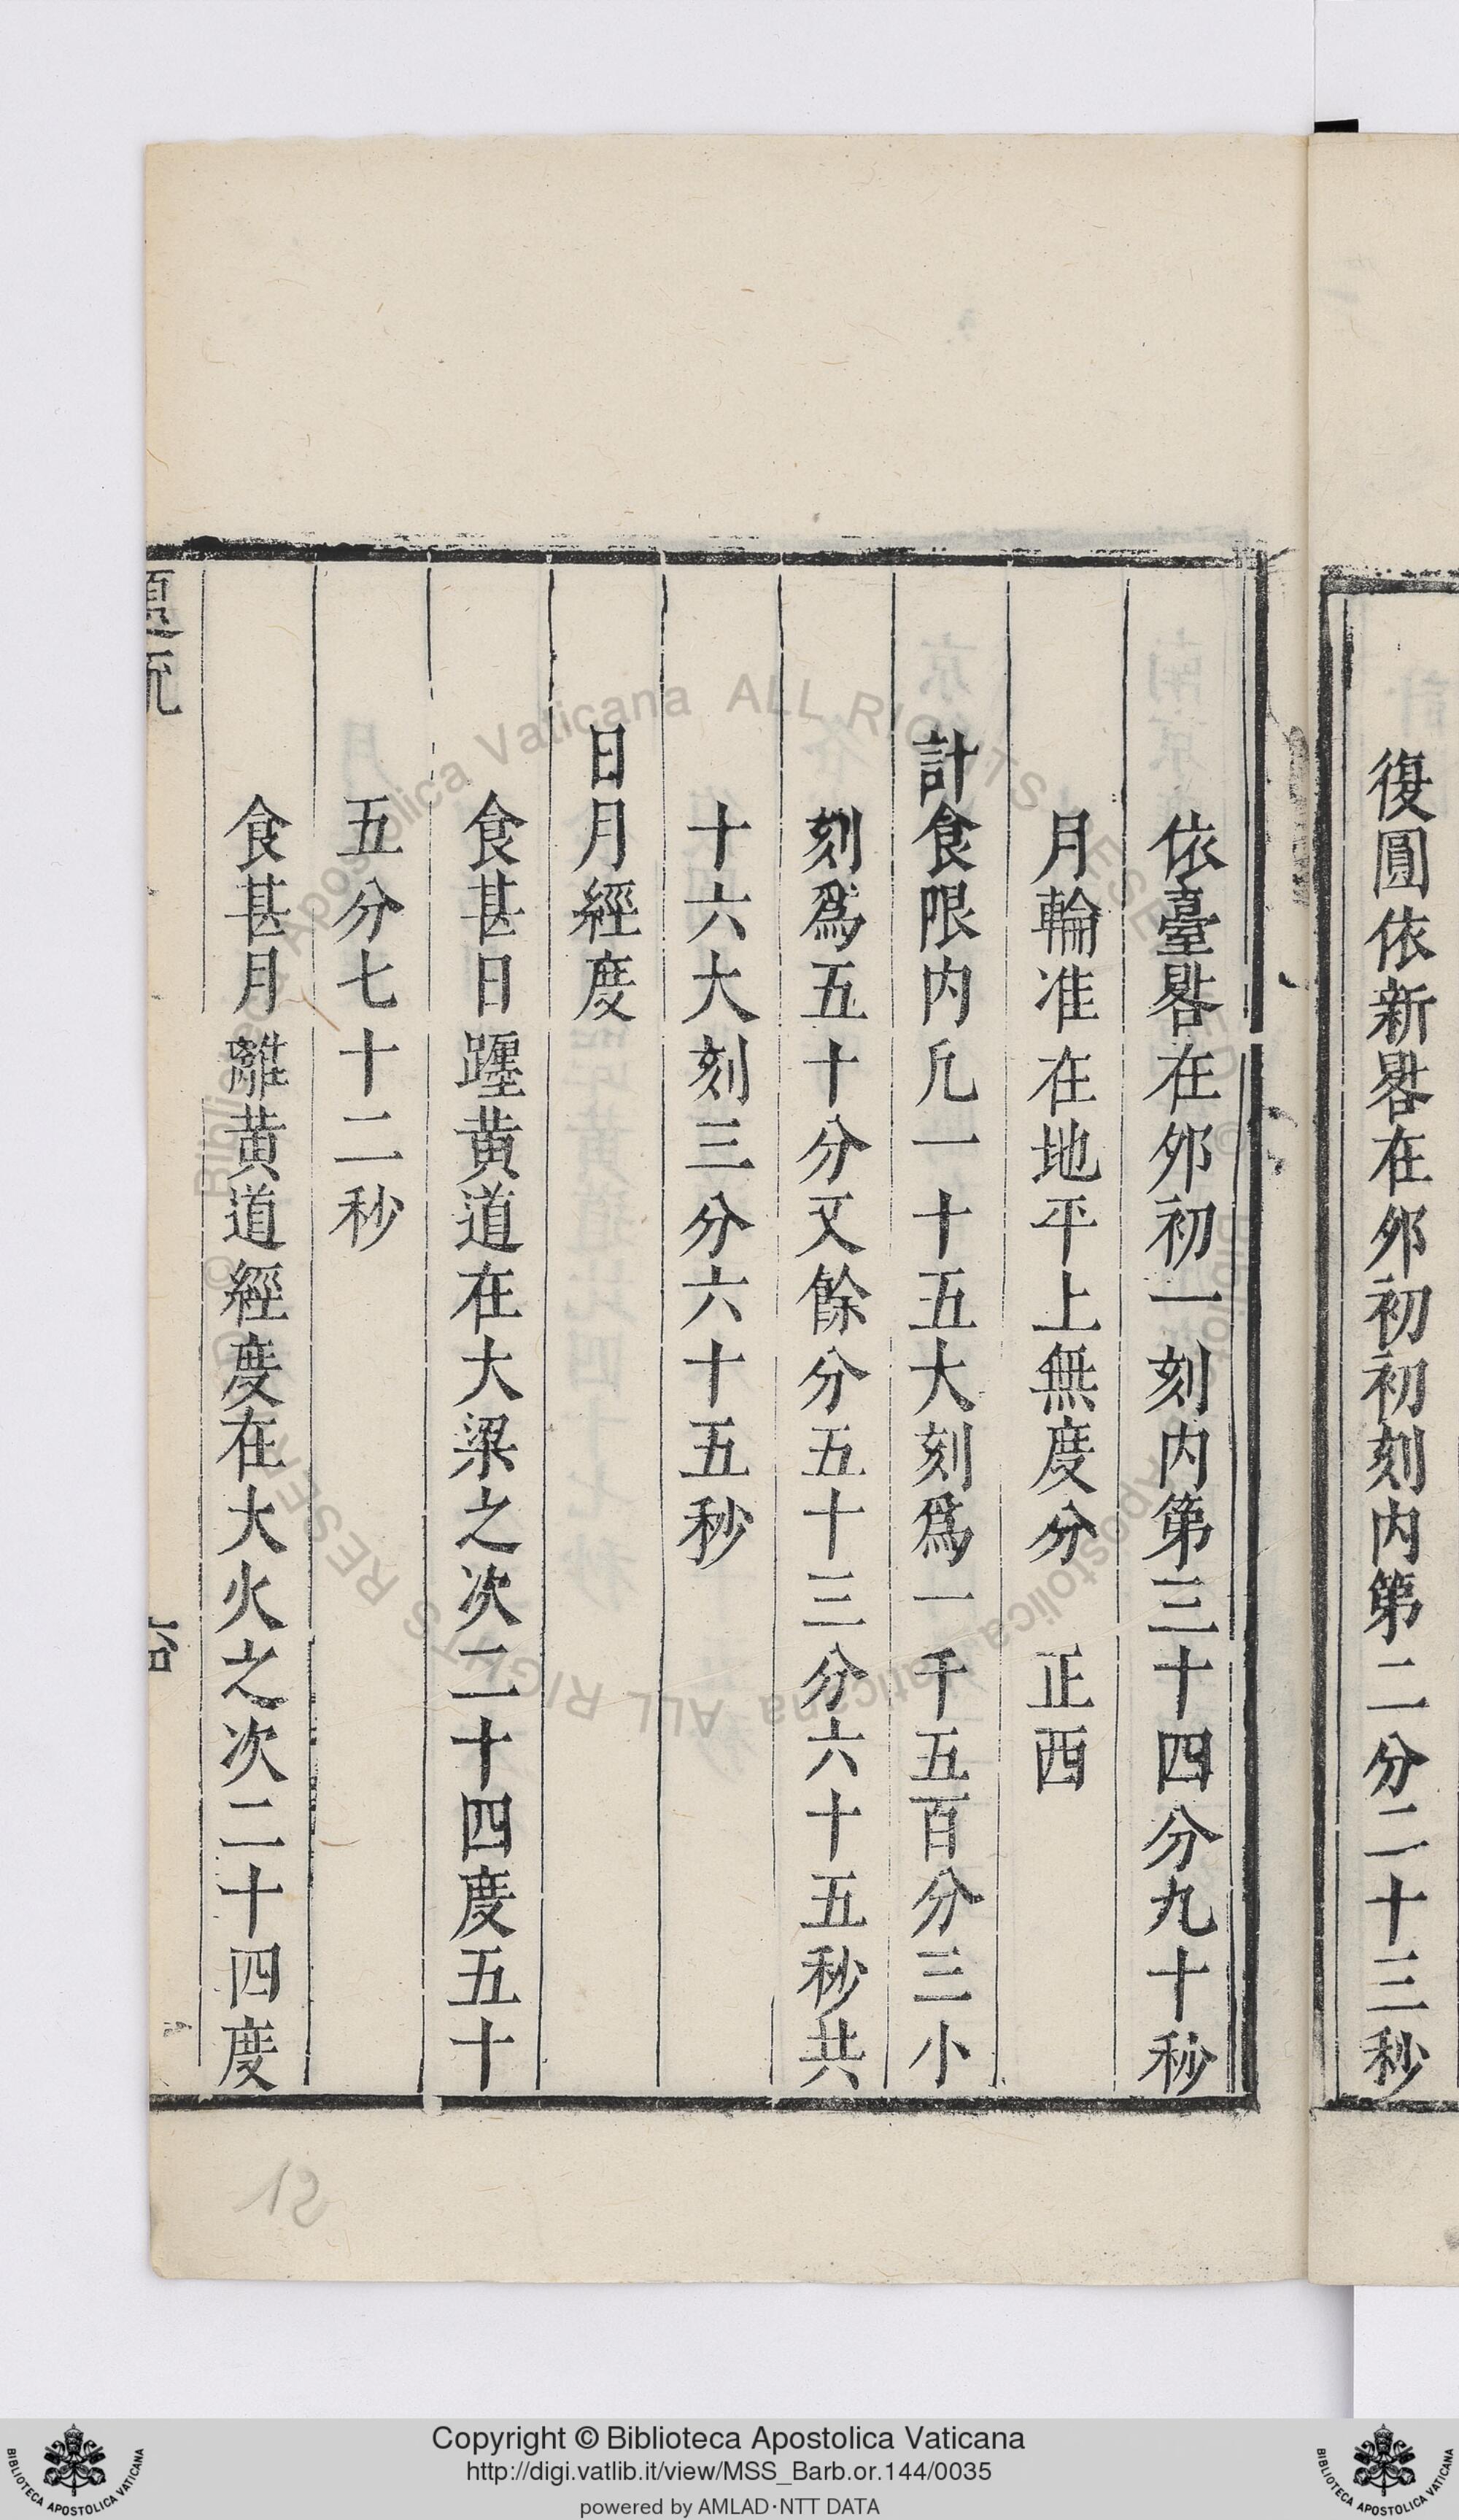 復圓依新晷在夘初初刻内第二分二十三秒
依臺晷在夘初一刻内第三十四分九十秒
月輪准在地平上無度分　正西
計食限内凢一十五大刻爲一千五百分三小
刻爲五十分又餘分五十三分六十五秒共
十六大刻三分六十五秒
日月經度
食甚日躔黄道在大梁之次二十四度五十
五分七十二秒
食甚月離黄道經度在大火之次二十四度
12
Copyright © Biblioteca Apostolica Vaticana
http://digi.vatlib.it/view/MSS_Barb.or.144/0035
powered by AMLAD·NTT DATA
BIBLIOTECA APOSTOLICA VATICANA
BIBLIOTECA APOSTOLICA VATICANA